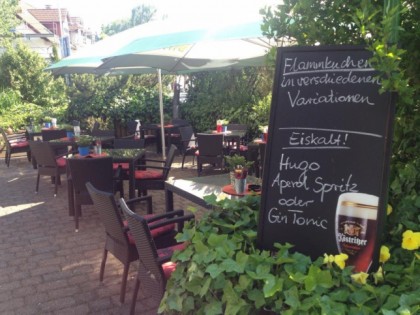 Flammkuchen
in verschiedenen
Variationen
Eiskalt!
Hugo
Aperol Spritz
oder
Gin Tonic
Alpirsbacher